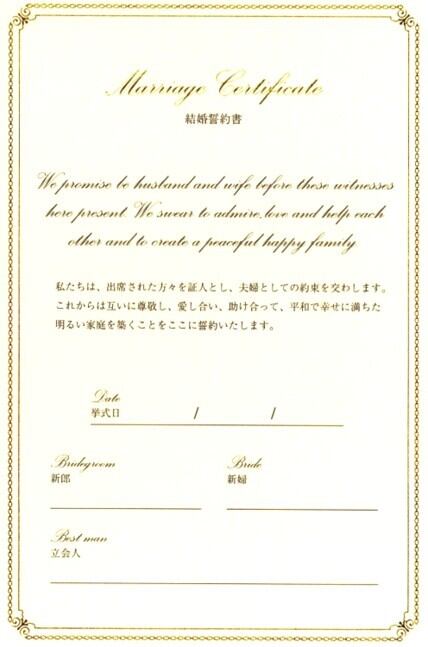 Marriage Certificate
結婚誓約書
We promise be husband and wife before these witnesses
here present. We swear to admire, love and help each
other and to create a peaceful happy family.
私たちは、出席された方々を証人とし、夫婦としての約束を交わします。
これからは互いに尊敬し、愛し合い、助け合って、平和で幸せに満ちた
明るい家庭を築くことをここに誓約いたします。
Date
挙式日 / /
Bridegroom Bride
新郎 新婦
Best man
立会人